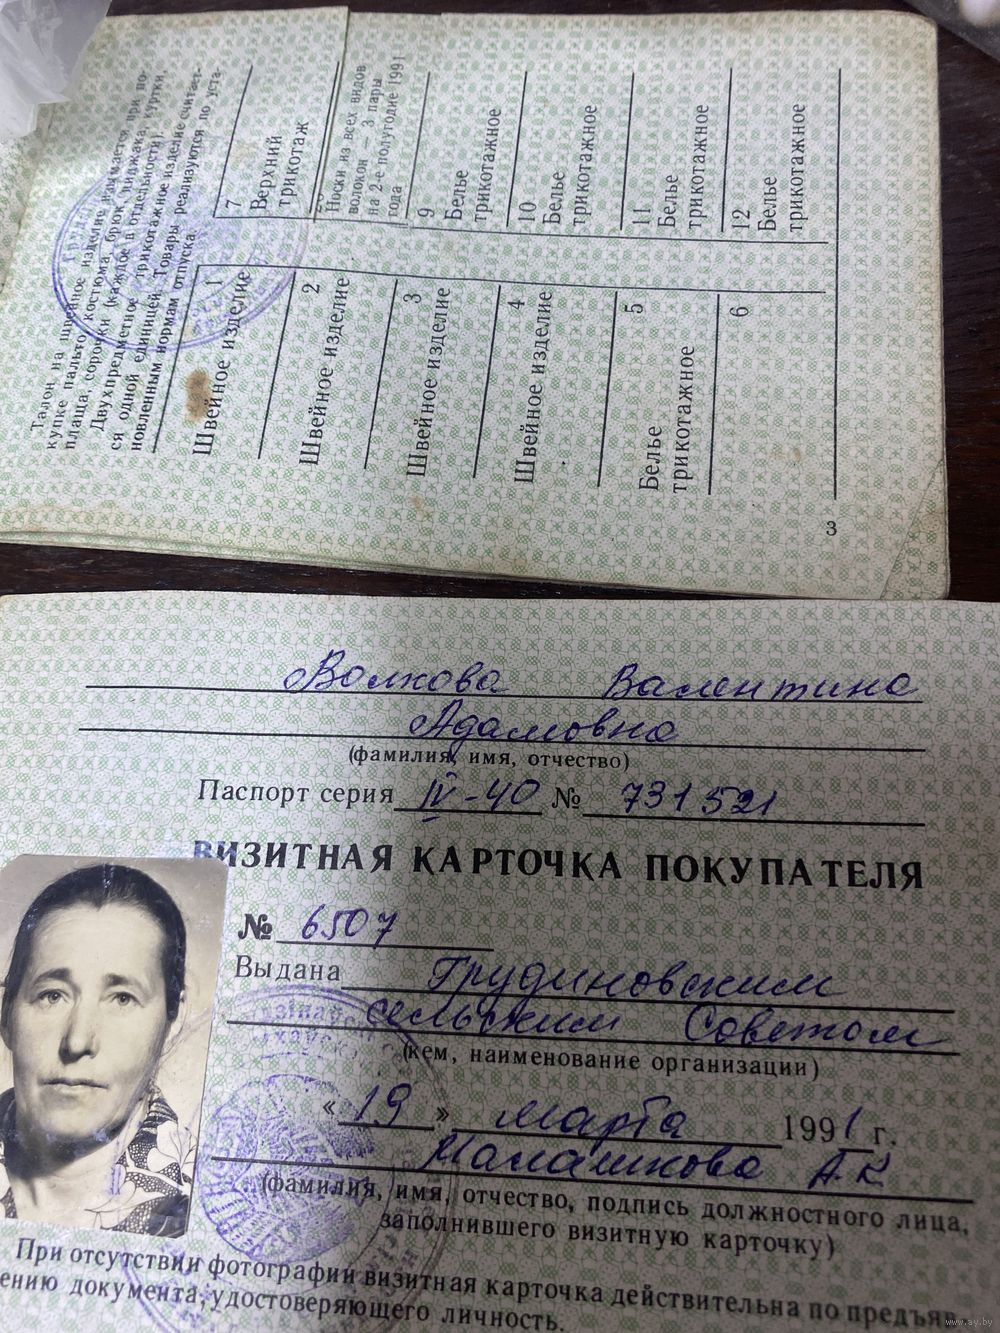 Талон на швейное изделие взимается при по-
купке пальто, костюма, брюк, пиджака, куртки,
плаща, сорочки (каждое в отдельности).
Двухпредметное трикотажное изделие считает-
ся одной единицей. Товары реализуются по уста-
новленным нормам отпуска.
1
Швейное изделие
2
Швейное изделие
3
Швейное изделие
4
Швейное изделие
5
Белье
трикотажное
6
7
Верхний
трикотаж
Носки из всех видов
волокон — 3 пары
на 2-е полугодие 1991
года
9
Белье
трикотажное
10
Белье
трикотажное
11
Белье
трикотажное
12
Белье
трикотажное
3
Волкова Валентина
Адамовна
(фамилия, имя, отчество)
Паспорт серия IV-40 № 731521
ВИЗИТНАЯ КАРТОЧКА ПОКУПАТЕЛЯ
№ 6507
Выдана Грудиновским
сельским Советом
(кем, наименование организации)
«19» марта 1991 г.
Малашкова А.К
(фамилия, имя, отчество, подпись должностного лица,
заполнившего визитную карточку)
При отсутствии фотографии визитная карточка действительна по предъяв-
ению документа, удостоверяющего личность.
www.ay.by